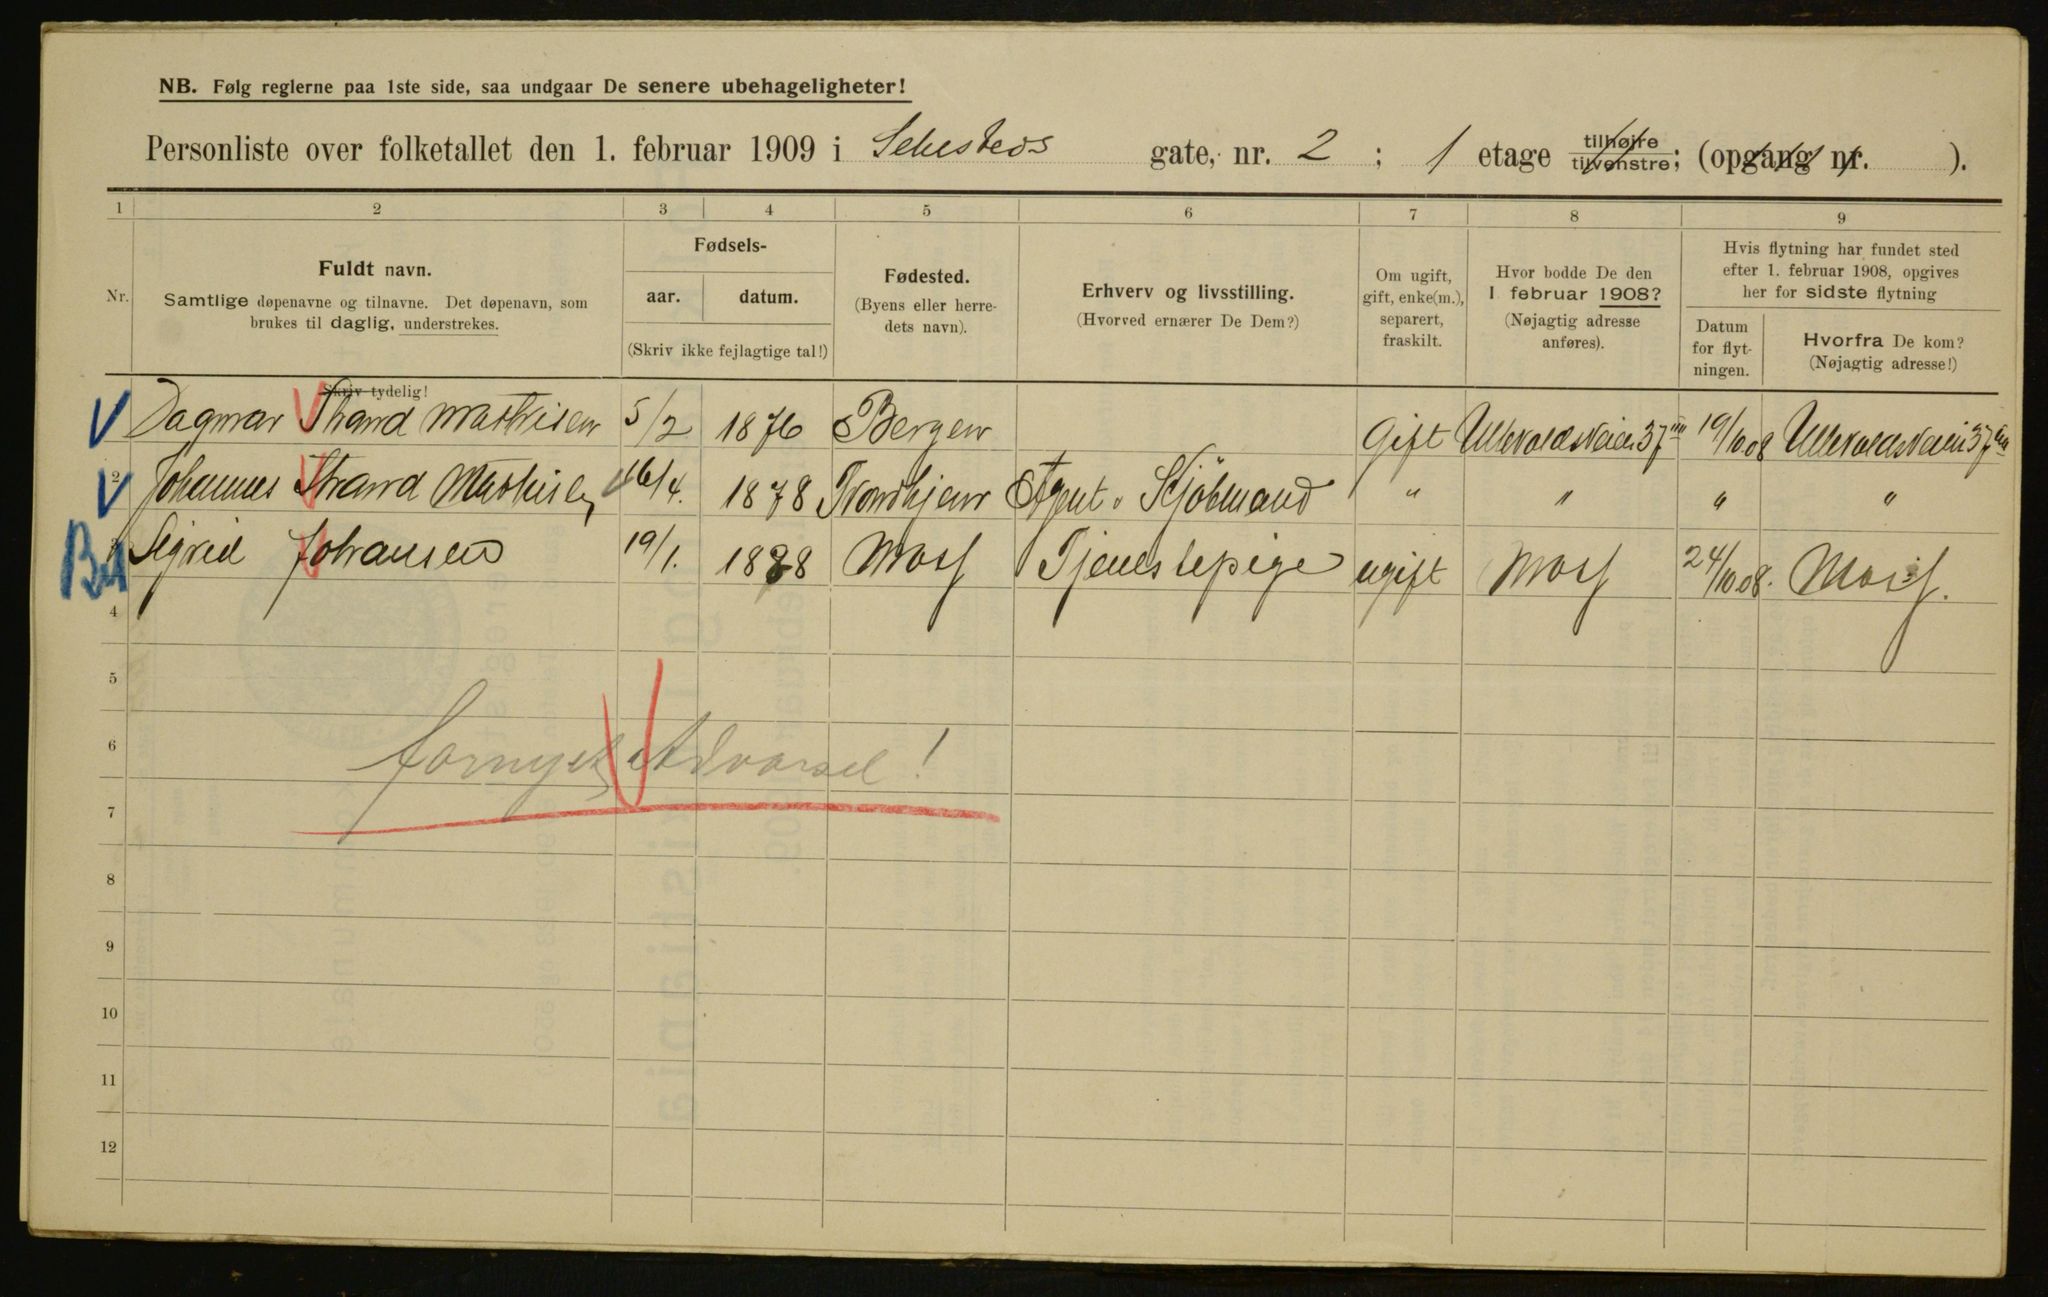 NB. Følg reglerne paa 1ste side, saa undgaar De senere ubehageligheter!
Personliste over folketallet den 1. februar 1909 i Sehesteds gate, nr. 2 ; 1 etage tilhøire tilvenstre; (opgang nr. ).
1 2 3 4 5 6 7 8 9
Nr.
Fuldt navn.
Samtlige døpenavne og tilnavne. Det døpenavn, som
brukes til daglig, understrekes.
Skriv tydelig!
Fødsels-
aar. datum.
(Skriv ikke fejlagtige tal!)
Fødested.
(Byens eller herre-
dets navn).
Erhverv og livsstilling.
(Hvorved ernærer De Dem?)
Om ugift,
gift, enke(m.),
separert,
fraskilt.
Hvor bodde De den
1 februar 1908?
(Nøjagtig adresse
anføres).
Hvis flytning har fundet sted
efter 1. februar 1908, opgives
her for sidste flytning
Datum
for flyt-
ningen.
Hvorfra De kom?
(Nøjagtig adresse!)
Dagmar Strand Mathisen 5/2 1876 Bergen Gift Ullevoldsveien 37 19/10 08 Ullevoldsveien 37
2 Johannes Strand Mathisen 16/4. 1878 Trondhjem Agent. Kjöbmand " " " "
3 Sigrid Johansen 19/1. 1888 Moss Tjenestepige ugift Moss 24/10 08. Moss.
4
5
6 fornyet Advarsel!
7
8
9
10
11
12